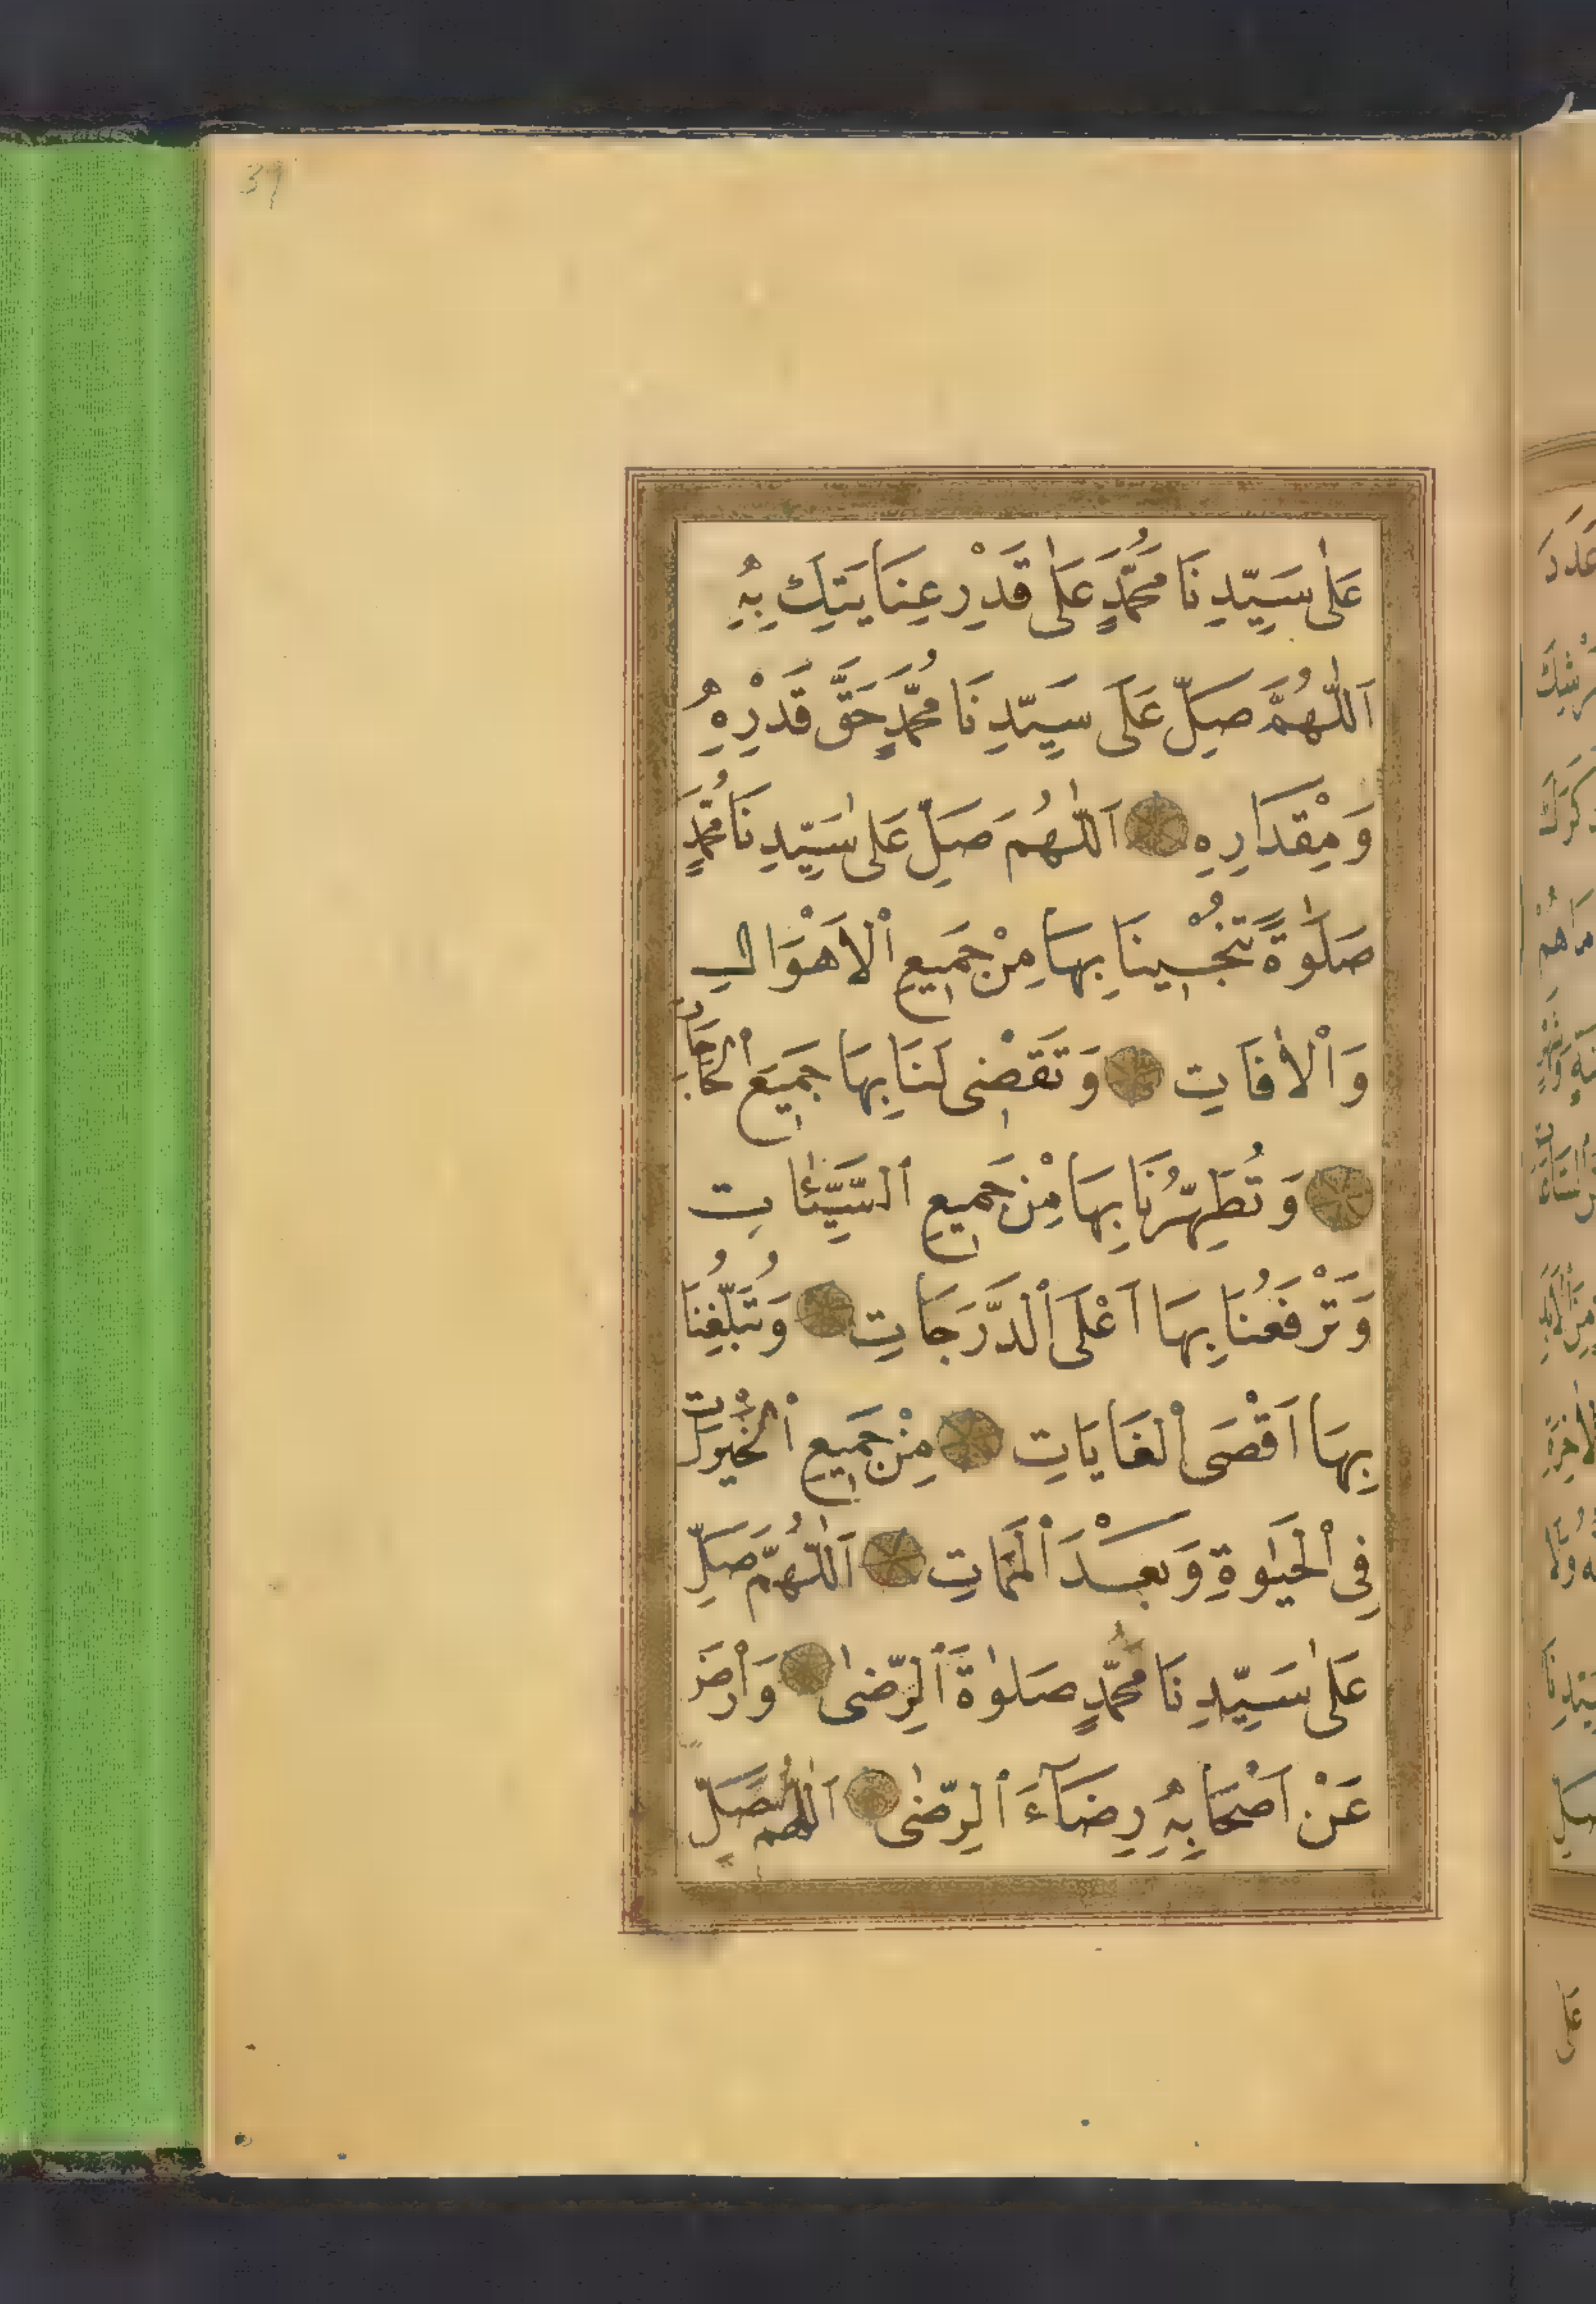 39
عَلٰى سَيِّدِنَا مُحَمَّدٍ عَلٰى قَدْرِ عِنَايَتِكَ بِهِ
اَللّٰهُمَّ صَلِّ عَلَى سَيِّدِنَا مُحَمَّدٍ حَقَّ قَدْرِهِ
وَمِقْدَارِهِ اَللّٰهُمَ صَلِّ عَلٰى سَيِّدِنَا مُحَمَّدٍ
صَلٰوةً تُنْجِينَا بِهَا مِنْ جَمِيعِ اْلاَهْوَالِ
وَاْلاٰفَاتِ وَتَقْضِى لَنَا بِهَا جَمِيعَ اْلحَاجَاتِ
وَتُطَهِّرُنَا بِهَا مِنْ جَمِيعِ السَّيِّئَاتِ
وَتَرْفَعُنَا بِهَا اَعْلَى الدَّرَجَاتِ وَتُبَلِّغُنَا
بِهَا اَقْصَى اْلغَايَاتِ مِنْ جَمِيعِ اْلخَيْرَاتِ
فِى اْلحَيٰوةِ وَبَعْدَ اْلمَمَاتِ اَللّٰهُمَّ صَلِّ
عَلٰى سَيِّدِنَا مُحَمَّدٍ صَلٰوةَ الرِّضٰى وَارْضَ
عَنْ اَصْحَابِهِ رِضَآءَ الرِّضٰى اَللّٰهُمَّ صَلِّ